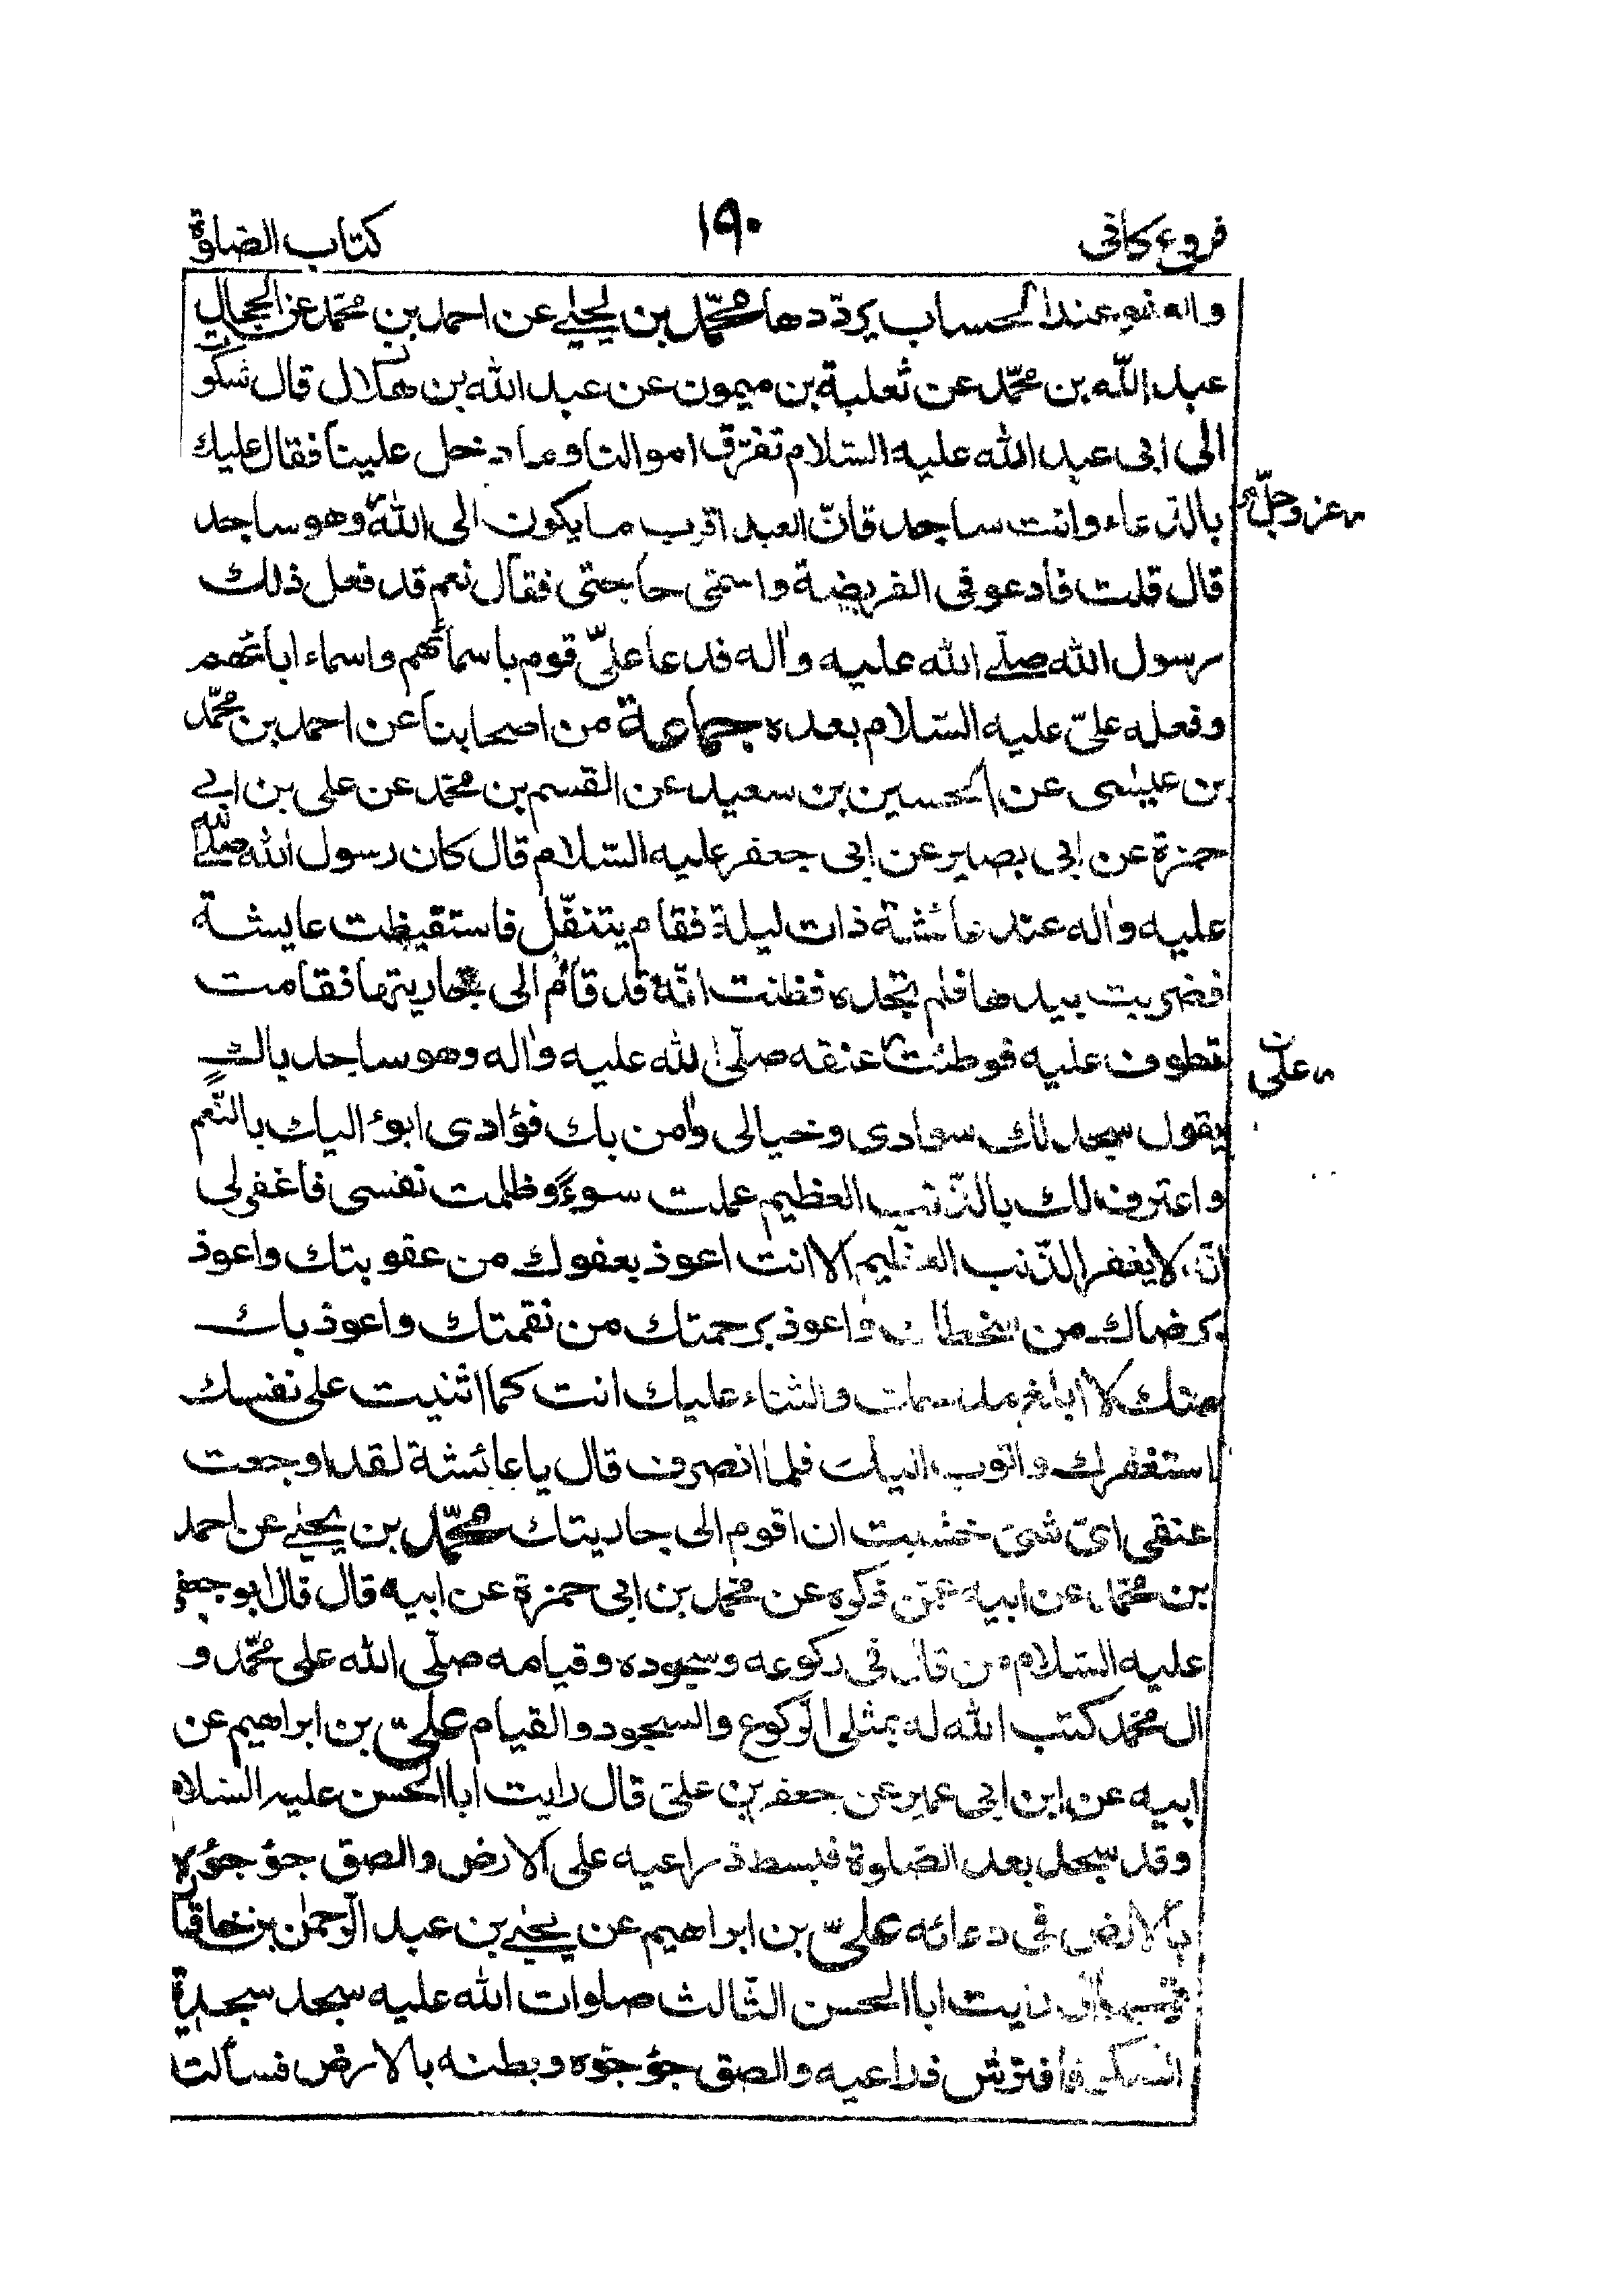 فروع كافى ١٩٠ كتاب الصلوة
والعفو عند الحساب يردّدها محمّد بن يحيى عن احمد بن محمّد عن الحجال
عبد اللّه بن محمّد عن ثعلبة بن ميمون عن عبد الله بن هلال قال شكوت
الى ابى عبد الله عليه السّلام تفرّق اموالنا وما دخل علينا فقال عليك
بالدّعاء وانت ساجد فانّ العبد اقرب ما يكون الى الله وهو ساجد
عزّ وجلّ
قال قلت فادعو فى الفريضة واسمّى حاجتى فقال نعم قد فعل ذلك
رسول الله صلّى الله عليه واله فدعا على قوم باسمائهم واسماء ابائهم
وفعله علىّ عليه السّلام بعده جماعة من اصحابنا عن احمد بن محمّد
بن عيسى عن الحسين بن سعيد عن القسم بن محمّد عن على بن ابى
حمزة عن ابى بصير عن ابى جعفر عليه السّلام قال كان رسول الله صلّى الله
عليه واله عند عائشة ذات ليلة فقام يتنفّل فاستيقظت عايشة
فضربت بيدها فلم تجده فظنت انّه قد قام الى جاريتها فقامت
تطوف عليه فوطئت عنقه صلّى الله عليه واله وهو ساجد باك
على
يقول سجد لك سوادى وخيالى وامن بك فؤادى ابوء اليك بالنّعم
واعترف لك بالذّنب العظيم عملت سوءً وظلمت نفسى فاغفر لى
انّه لا يغفر الذّنب العظيم الا انت اعوذ بعفوك من عقوبتك واعوذ
برضاك من سخطك واعوذ برحمتك من نقمتك واعوذ بك
منك لا ابلغ مدحك والثناء عليك انت كما اثنيت على نفسك
استغفرك واتوب اليك فلما انصرف قال يا عائشة لقد اوجعت
عنقى اىّ شىء خشيت ان اقوم الى جاريتك محمّد بن يحيى عن احمد
بن محمّد عن ابيه عمّن ذكره عن محمّد بن ابى حمزة عن ابيه قال قال ابو جعفر
عليه السّلام من قال فى ركوعه وسجوده وقيامه صلّى الله على محمّد و
ال محمّد كتب الله له بمثل الرّكوع والسجود والقيام علىّ بن ابراهيم عن
ابيه عن ابن ابى عمير عن جعفر بن علىّ قال رايت ابا الحسن عليه السّلام
وقد سجد بعد الصّلوة فبسط ذراعيه على الارض والصق جؤجؤه
بالارض فى دعائه علىّ بن ابراهيم عن يحيى بن عبد الرّحمن بن خاقان
قال رايت ابا الحسن الثّالث صلوات الله عليه سجد سجدة
الشكر فافترش ذراعيه والصق جؤجؤه وبطنه بالارض فسألت